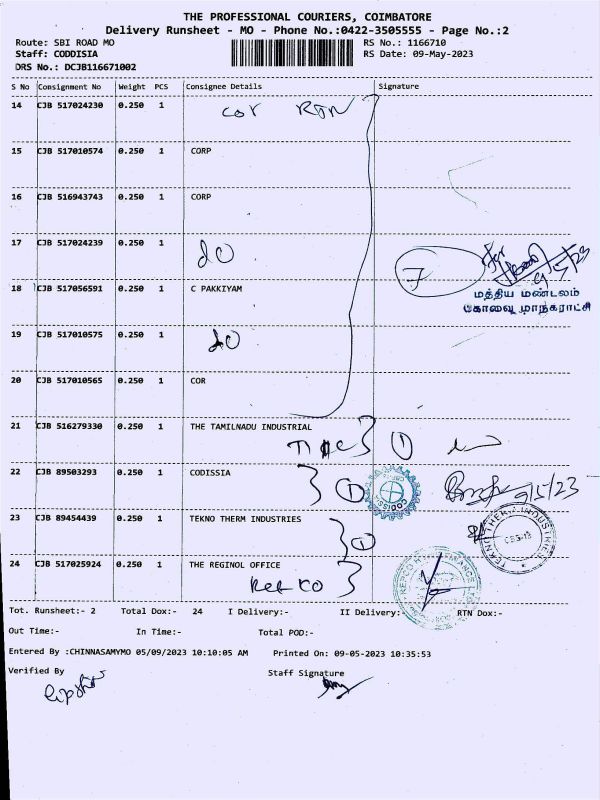 THE PROFESSIONAL COURIERS, COIMBATORE
Delivery Runsheet - MO - Phone No.:0422-3505555 - Page No.:2
Route: SBI ROAD MO RS No.: 1166710
Staff: CODDISIA RS Date: 09-May-2023
DRS No.: DCJB116671002
S No Consignment No Weight PCS Consignee Details Signature
14 CJB 517024230 0.250 1 COR RTN
15 CJB 517010574 0.250 1 CORP
16 CJB 516943743 0.250 1 CORP
17 CJB 517024239 0.250 1 do
7
9/5/23
18 CJB 517056591 0.250 1 C PAKKIYAM
மத்திய மண்டலம்
கோவை மாநகராட்சி
19 CJB 517010575 0.250 1 do
20 CJB 517010565 0.250 1 COR
21 CJB 516279330 0.250 1 THE TAMILNADU INDUSTRIAL
1
22 CJB 89503293 0.250 1 CODISSIA
1 CODISSIA 9/5/23
23 CJB 89454439 0.250 1 TEKNO THERM INDUSTRIES
1
24 CJB 517025924 0.250 1 THE REGINOL OFFICE
REPCO
Tot. Runsheet:- 2 Total Dox:- 24 I Delivery:- II Delivery:- RTN Dox:-
Out Time:- In Time:- Total POD:-
Entered By :CHINNASAMYMO 05/09/2023 10:10:05 AM Printed On: 09-05-2023 10:35:53
Verified By Staff Signature